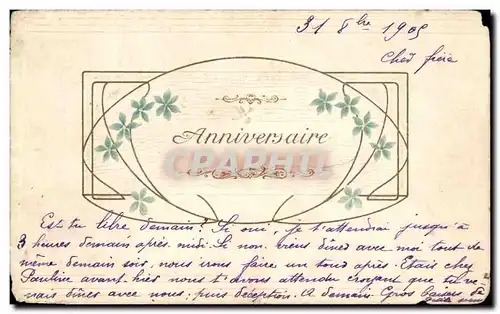 31 8bre 1905
Cher frère
Anniversaire
CPAPHIL
Es-tu libre demain? Si oui, je t'attendrai jusqu'à
3 heures demain après midi. Si non. viens dîner avec moi tout de
même demain soir, nous irons faire un tour après. Etais chez
Pauline avant hier nous t'avons attendu croyant que tu ve-
nais dîner avec nous; puis déception. A demain. Gros baiser de